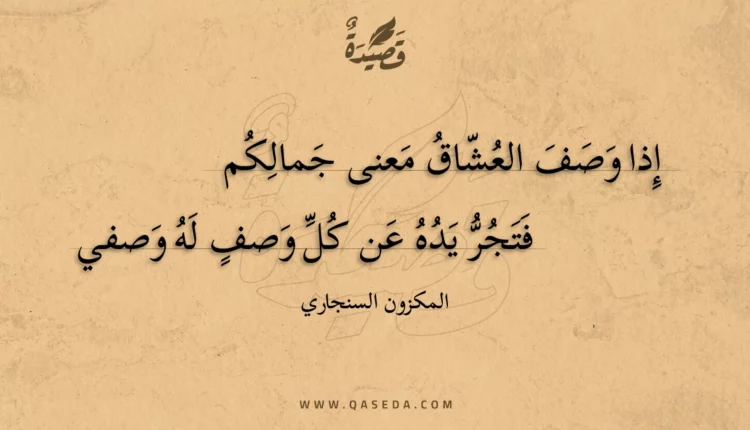 قَصِيدَةٌ
إِذا وَصَفَ العُشّاقُ مَعنى جَمالِكُم
فَتَجُرُّ يَدُهُ عَن كُلِّ وَصفٍ لَهُ وَصفي
المكزون السنجاري
WWW.QASEDA.COM